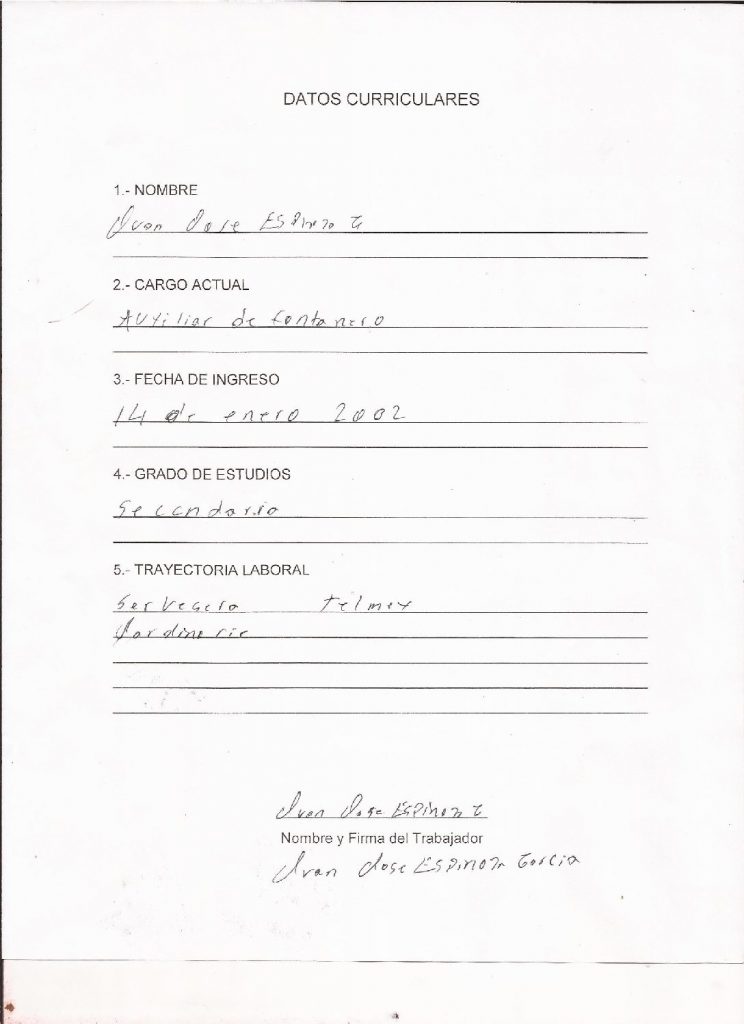 DATOS CURRICULARES
1.- NOMBRE
Juan Jose Espinoza G
2.- CARGO ACTUAL
Auxiliar de fontanero
3.- FECHA DE INGRESO
14 de enero 2002
4.- GRADO DE ESTUDIOS
Secundaria
5.- TRAYECTORIA LABORAL
Telmex
Jardineria
Juan Jose Espinoza G
Nombre y Firma del Trabajador
Juan Jose Espinoza Garcia